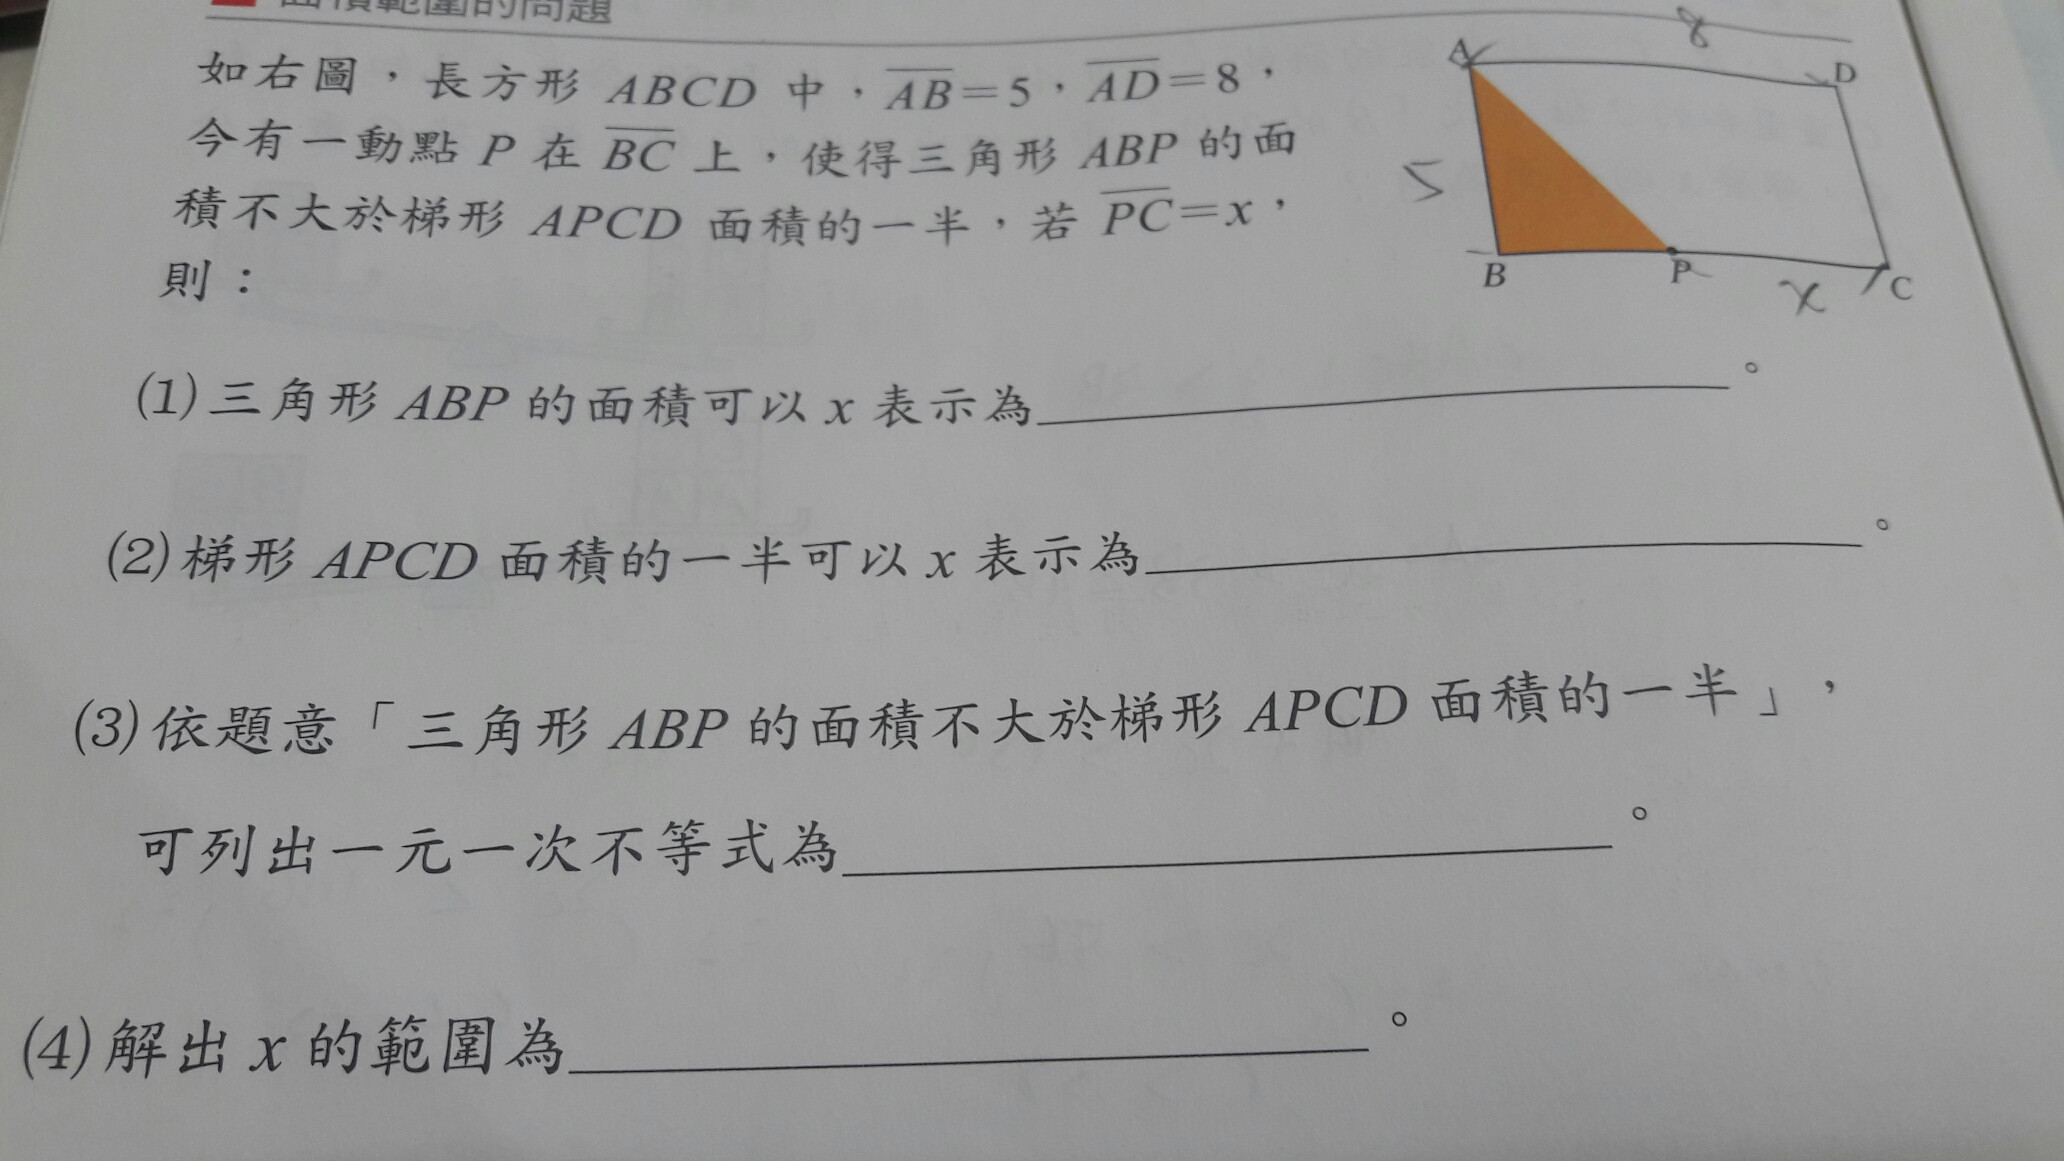 面積範圍的問題
8
如右圖，長方形 ABCD 中，AB=5，AD=8，
A
D
今有一動點 P 在 BC 上，使得三角形 ABP 的面
5
積不大於梯形 APCD 面積的一半，若 PC=x，
則：
B
P
x
C
(1)三角形 ABP 的面積可以 x 表示為＿＿＿＿＿＿。
(2)梯形 APCD 面積的一半可以 x 表示為＿＿＿＿＿＿。
(3)依題意「三角形 ABP 的面積不大於梯形 APCD 面積的一半」，
可列出一元一次不等式為＿＿＿＿＿＿。
(4)解出 x 的範圍為＿＿＿＿＿＿。